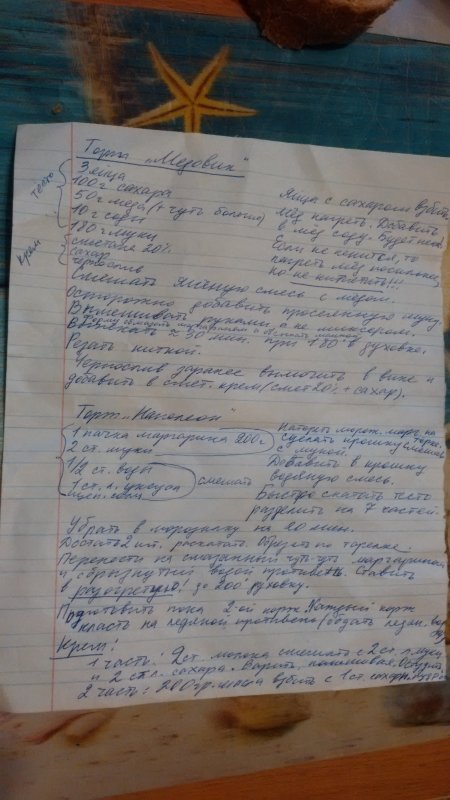 Торт „Медовик"
тесто
3 яйца
100 г сахара
50 г меда (+ чуть больше)
10 г соды
180 г муки
крем
сметана 20%
сахар
чернослив
Яйца с сахаром взбить.
Мёд нагреть. Добавить
в мед соду. Будет
Если не пенится, то
нагреть мёд
но не кипятить!!!
Смешать яичную смесь с медом.
Осторожно добавить просеянную муку.
Вымешивать руками, а не миксером.
Форму
Выпекать ≈ 30 мин. при 180° в духовке.
Резать ниткой.
Чернослив заранее вымочить в вине и
добавить в смет. крем (смет 20% + сахар).
Торт „Наполеон"
1 пачка маргарина 200 г
2 ст. муки
1/2 ст. воды
1 ст. л. уксуса
смешать
Натереть морож. марг. на терке,
сделать крошку, смешав
с мукой.
Добавить в крошку
водяную смесь.
Быстро скатать тесто
разделить на 7 частей.
Убрать в морозилку на 20 мин.
Достать 2 шт. раскатать. Обрезать по тарелке.
Перенести на смазанный чуть-чуть маргарином
и сбрызнутый водой противень. Ставить
в разогретую до 200° духовку.
Подготовить пока 2-ой корж. Каждый корж
класть на ледяной противень
Крем:
1 часть: 2 ст. молока смешать с 2 ст. л. муки
и 2 ст. л. сахара. Варить, помешивая. Остудить
2 часть: 200 гр. масла взбить с 1 ст. сахарн.